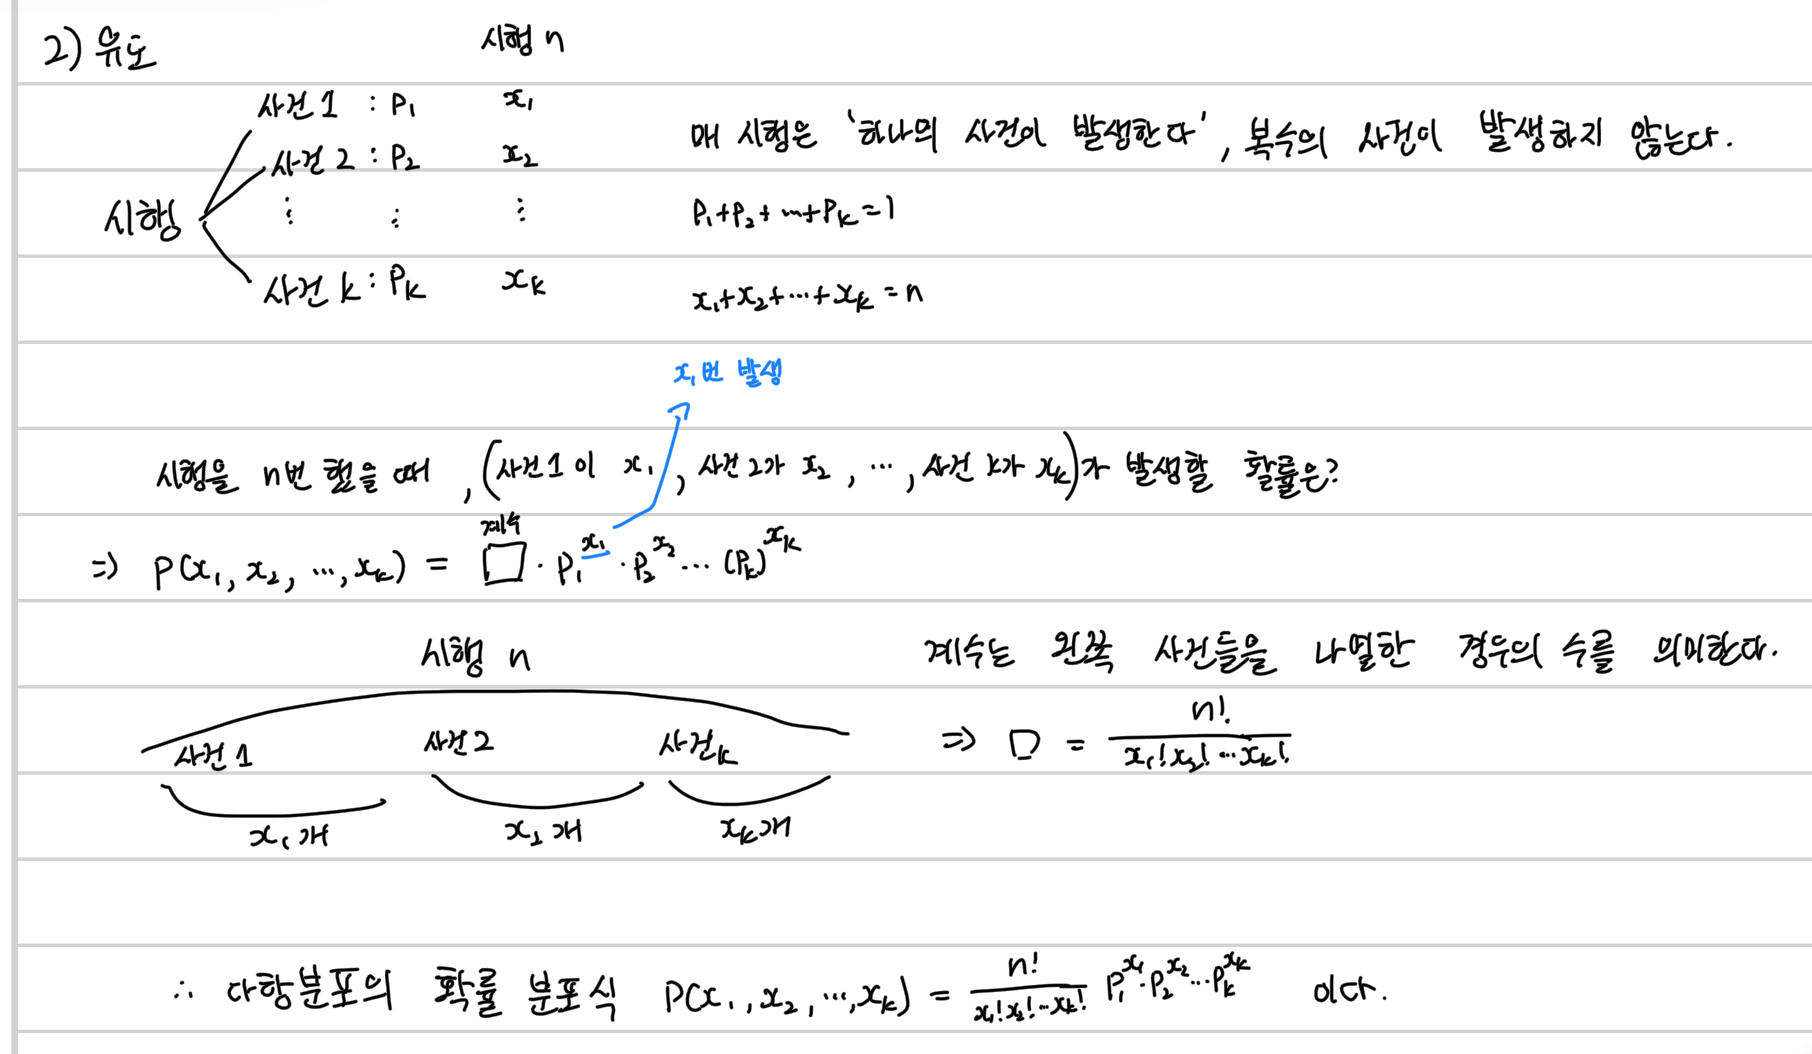 2) 유도 시행 n
사건 1 : P₁ x₁
매 시행은 '하나의 사건이 발생한다', 복수의 사건이 발생하지 않는다.
사건 2 : P₂ x₂
시행 ⋮ ⋮ ⋮ P₁+P₂+…+Pₖ=1
사건 k : Pₖ xₖ x₁+x₂+…+xₖ=n
x₁번 발생
시행을 n번 했을 때, (사건1이 x₁, 사건2가 x₂, …, 사건 k가 xₖ)가 발생할 확률은?
계수
⇒ P(x₁, x₂, …, xₖ) = □ · P₁^x₁ · P₂^x₂ … (Pₖ)^xₖ
시행 n 계수는 왼쪽 사건들을 나열한 경우의 수를 의미한다.
사건1 사건2 사건k ⇒ □ = n! / x₁!x₂!…xₖ!
x₁개 x₂개 xₖ개
∴ 다항분포의 확률 분포식 P(x₁, x₂, …, xₖ) = n! / x₁!x₂!…xₖ! P₁^x₁·P₂^x₂…Pₖ^xₖ 이다.